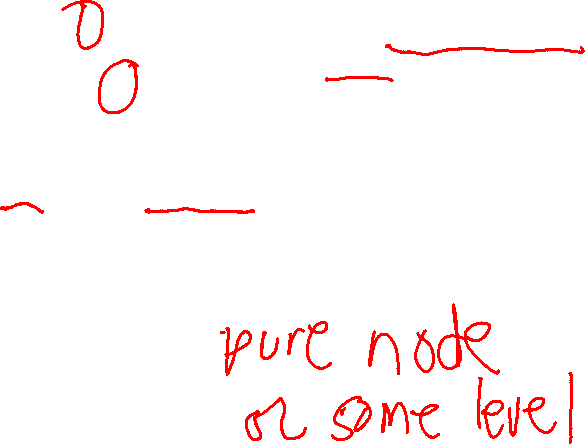 pure node
or some level